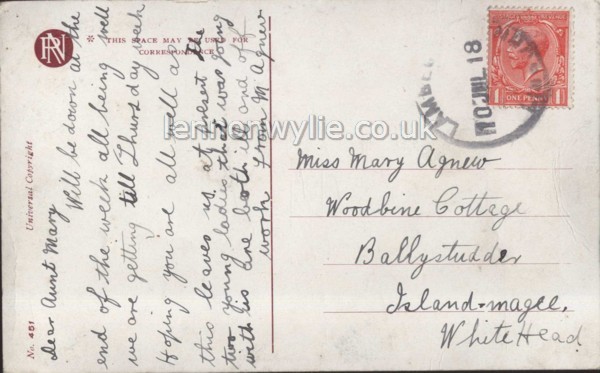 * THIS SPACE MAY BE USED FOR
CORRESPONDENCE
Universal Copyright
No. 451
Dear Aunt Mary
Will be down at the
end of the week all being well
we are getting till Thursday week
Hoping you are all well as
this leaves us at present the
two young ladies that was going
with us are both ill and of
work From M Agnew
ONE PENNY
18
Miss Mary Agnew
Woodbine Cottage
Ballystudder
Island-magee,
WhiteHead
lennonwylie.co.uk